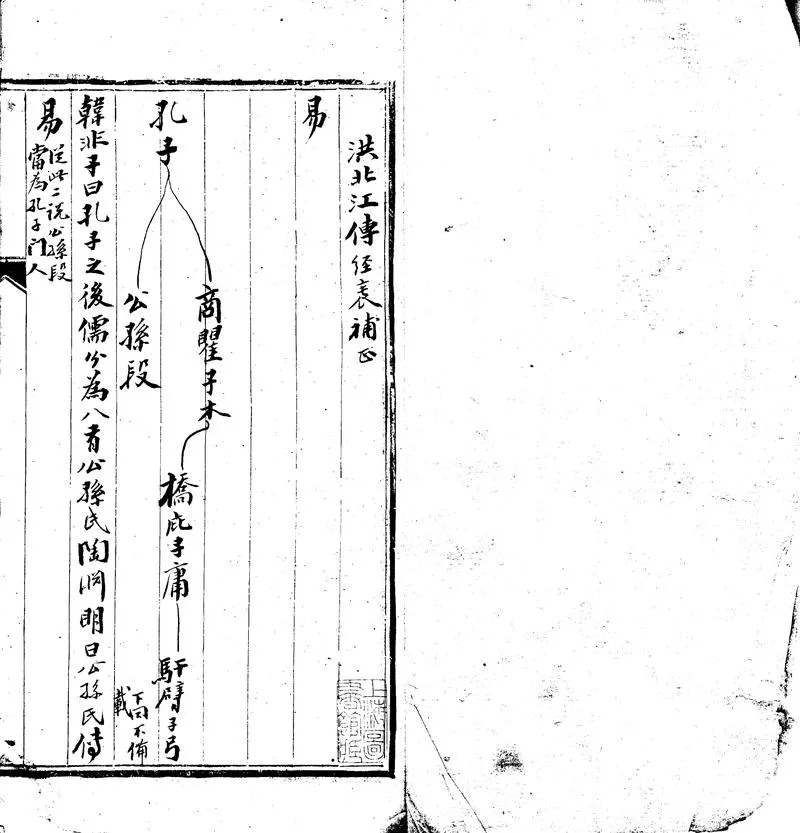 洪北江傳經表補正
易
孔子
商瞿子木
橋庇子庸
馯臂子弓
下同不備
載
公孫段
韓非子曰孔子之後儒分為八有公孫氏陶淵明曰公孫氏傳
易
從此二說公孫段
當為孔子門人